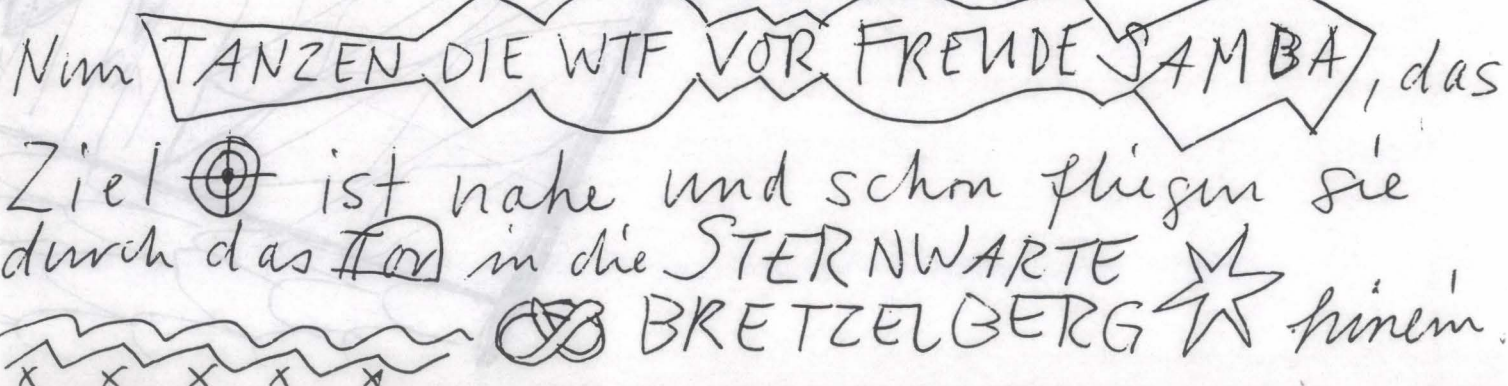 Nun TANZEN DIE WTF VOR FREUDE SAMBA, das
Ziel ist nahe und schon fliegen sie
durch das Tor in die STERNWARTE
BRETZELBERG hinein.